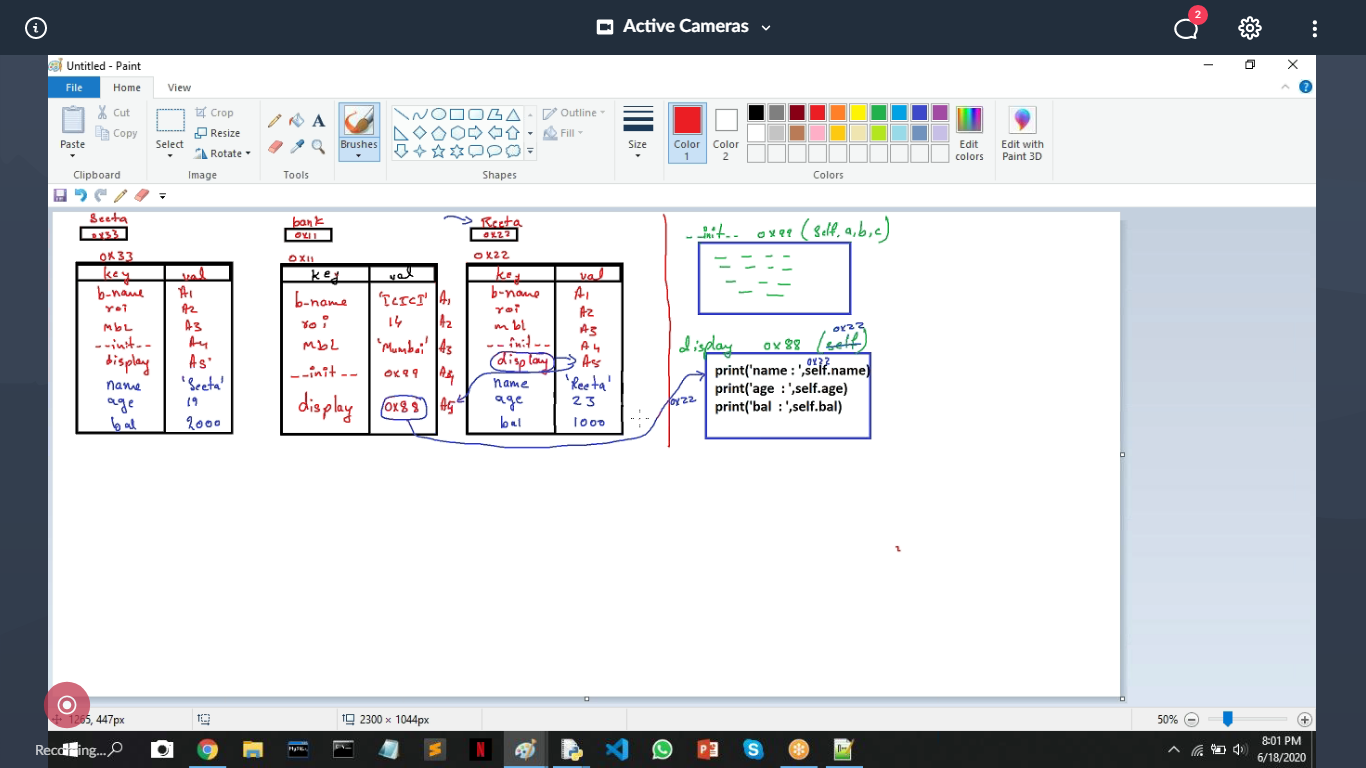 Active Cameras
2
Untitled - Paint
File Home View
Paste Cut Copy
Clipboard
Select Crop Resize Rotate
Image
Tools
Brushes
Shapes
Outline Fill
Size
Color 1
Color 2
Edit colors
Colors
Edit with Paint 3D
Seeta
0x33
0x33
key val
b-name A1
roi A2
mbl A3
--init-- A4
display A5
name 'Seeta'
age 19
bal 2000
bank
0x11
0x11
key val
b-name 'ICICI' A1
roi 14 A2
mbl 'Mumbai' A3
--init-- 0x99 A4
display 0x88 A5
Reeta
0x22
0x22
key val
b-name A1
roi A2
mbl A3
--init-- A4
display A5
name 'Reeta'
age 23
bal 1000
--init-- 0x99 (self,a,b,c)
0x22
display 0x88 (self)
0x22
print('name : ',self.name)
print('age : ',self.age)
print('bal : ',self.bal)
0x22
1265, 447px
2300 × 1044px
50%
Recording...
8:01 PM
6/18/2020